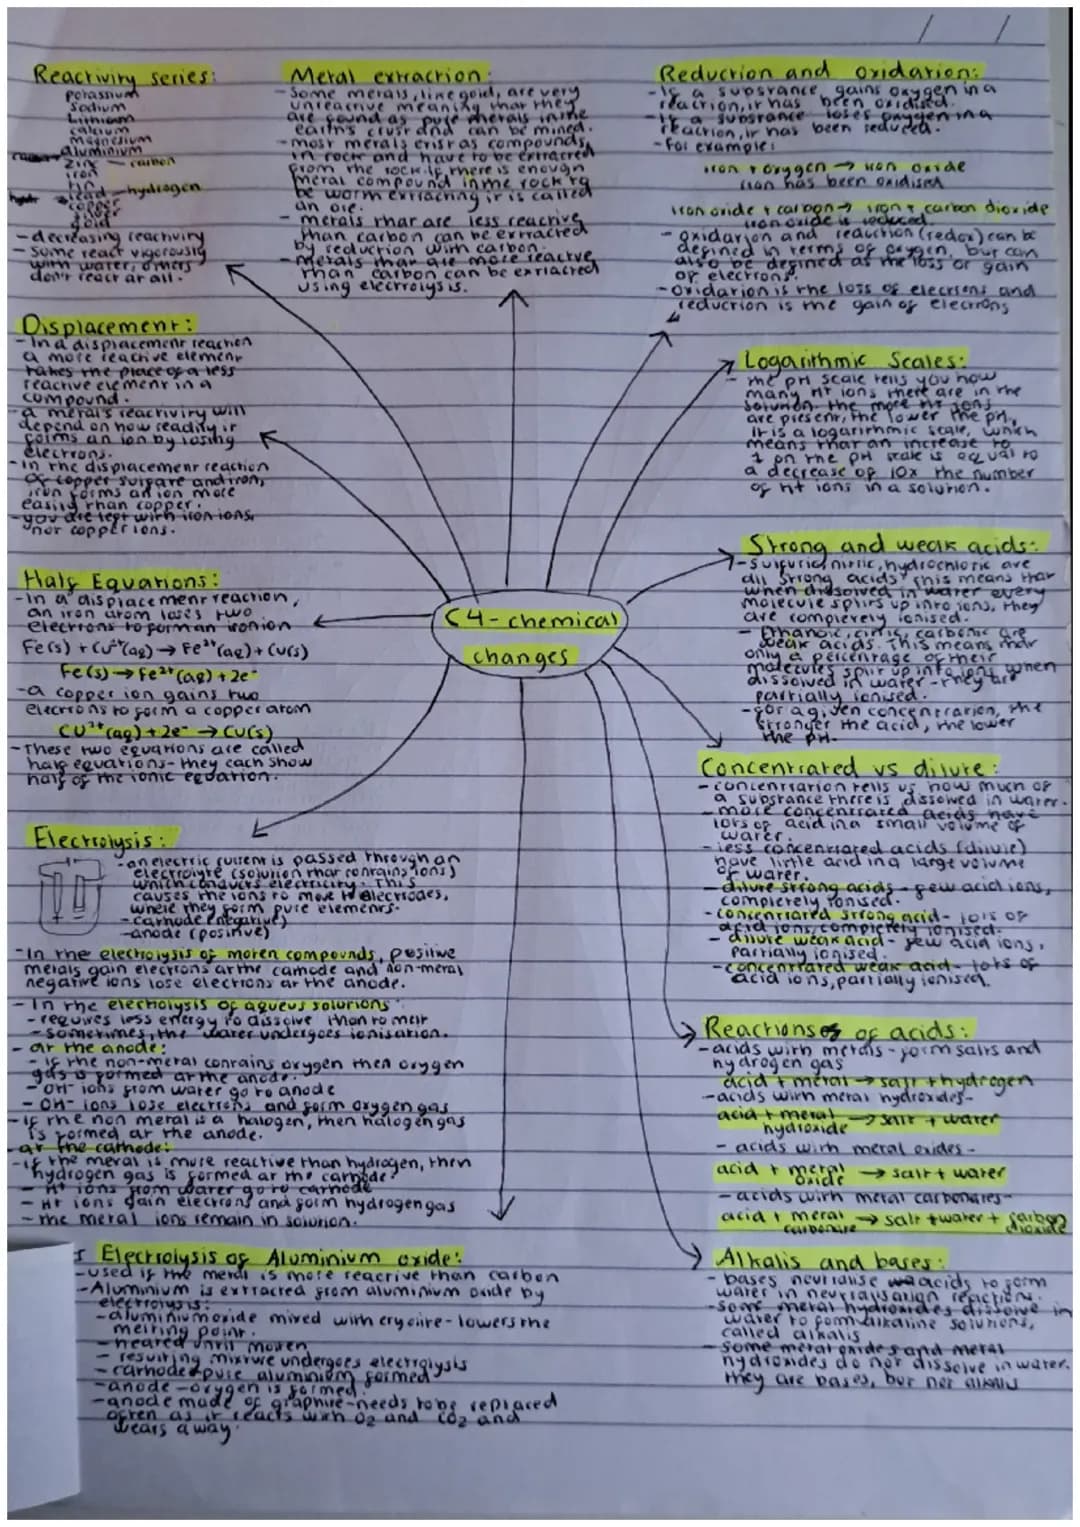 Reactivity series:
potassium
sodium
lithium
calcium
magnesium
aluminium
zinc — carbon
iron
tin
lead — hydrogen
copper
silver
gold
- decreasing reactivity
- Some react vigorously
with water, others
don't react at all.
Metal extraction:
- Some metals, like gold, are very
unreactive meaning that they
are found as pure metals in the
earth's crust and can be mined.
- most metals exist as compounds
in rock and have to be extracted
from the rock. if there is enough
metal compound in the rock to
be worth extracting it is called
an ore.
- metals that are less reactive
than carbon can be extracted
by reduction with carbon.
- metals that are more reactive
than carbon can be extracted
using electrolysis.
Reduction and oxidation:
- if a substance gains oxygen in a
reaction, it has been oxidised.
- if a substance loses oxygen in a
reaction, it has been reduced.
- For example:
iron + oxygen → iron oxide
iron has been oxidised
iron oxide + carbon → iron + carbon dioxide
iron oxide is reduced
- oxidation and reduction (redox) can be
defined in terms of oxygen, but can
also be defined as the loss or gain
of electrons.
- oxidation is the loss of electrons and
reduction is the gain of electrons
Displacement:
- In a displacement reaction
a more reactive element
takes the place of a less
reactive element in a
compound.
- a metal's reactivity will
depend on how readily it
forms an ion by losing
electrons.
- in the displacement reaction
of copper sulfate and iron,
iron forms an ion more
easily than copper.
- you are left with iron ions,
not copper ions.
Logarithmic Scales:
- the pH scale tells you how
many H+ ions there are in the
solution. the more H+ ions
are present, the lower the pH.
It is a logarithmic scale, which
means that an increase to
1 on the pH scale is equal to
a decrease of 10x the number
of H+ ions in a solution.
Strong and weak acids:
- Sulfuric, nitric, hydrochloric are
all strong acids. This means that
when dissolved in water every
molecule splits up into ions, they
are completely ionised.
- Ethanoic, citric, carbonic are
weak acids. This means that
only a percentage of their
molecules split up into ions when
dissolved in water - they are
partially ionised.
- for a given concentration, the
stronger the acid, the lower
the pH.
Half Equations:
- In a displacement reaction,
an iron atom loses two
electrons to form an iron ion
Fe(s) + Cu²⁺(aq) → Fe²⁺(aq) + Cu(s)
Fe(s) → Fe²⁺(aq) + 2e⁻
- a copper ion gains two
electrons to form a copper atom
Cu²⁺(aq) + 2e⁻ → Cu(s)
- These two equations are called
half equations - they each show
half of the ionic equation.
C4 - chemical
changes
Concentrated vs dilute:
- concentration tells us how much of
a substance there is dissolved in water.
- more concentrated acids have
lots of acid in a small volume of
water.
- less concentrated acids (dilute)
have little acid in a large volume
of water.
- dilute strong acids - few acid ions,
completely ionised.
- concentrated strong acid - lots of
acid ions, completely ionised.
- dilute weak acid - few acid ions,
partially ionised.
- concentrated weak acid - lots of
acid ions, partially ionised.
Electrolysis:
- an electric current is passed through an
electrolyte (solution that contains ions)
which conducts electricity. This
causes the ions to move to electrodes,
where they form pure elements.
- cathode (negative)
- anode (positive)
- In the electrolysis of molten compounds, positive
metals gain electrons at the cathode and non-metal
negative ions lose electrons at the anode.
- In the electrolysis of aqueus solutions:
- requires less energy to dissolve than to melt
- sometimes, the water undergoes ionisation.
- at the anode:
- if the non-metal contains oxygen then oxygen
gas is formed at the anode.
- OH⁻ ions from water go to anode
- OH⁻ ions lose electrons and form oxygen gas
- if the non metal is a halogen, then halogen gas
is formed at the anode.
- at the cathode:
- if the metal is more reactive than hydrogen, then
hydrogen gas is formed at the cathode.
- H+ ions from water go to cathode
- H+ ions gain electrons and form hydrogen gas
- the metal ions remain in solution.
Reactions of acids:
- acids with metals - form salts and
hydrogen gas
acid + metal → salt + hydrogen
- acids with metal hydroxides -
acid + metal hydroxide → salt + water
- acids with metal oxides -
acid + metal oxide → salt + water
- acids with metal carbonates -
acid + metal carbonate → salt + water + carbon dioxide
Electrolysis of Aluminium oxide:
- used if the metal is more reactive than carbon
- Aluminium is extracted from aluminium oxide by
electrolysis:
- aluminium oxide mixed with cryolite - lowers the
melting point.
- heated until molten
- resulting mixture undergoes electrolysis
- cathode - pure aluminium formed
- anode - oxygen is formed.
- anode made of graphite - needs to be replaced
often as it reacts with O₂ and CO₂ and
wears away.
Alkalis and bases:
- bases neutralise acids to form
water in neutralisation reactions.
- some metal hydroxides dissolve in
water to form alkaline solutions,
called alkalis
- some metal oxides and metal
hydroxides do not dissolve in water.
they are bases, but not alkalis